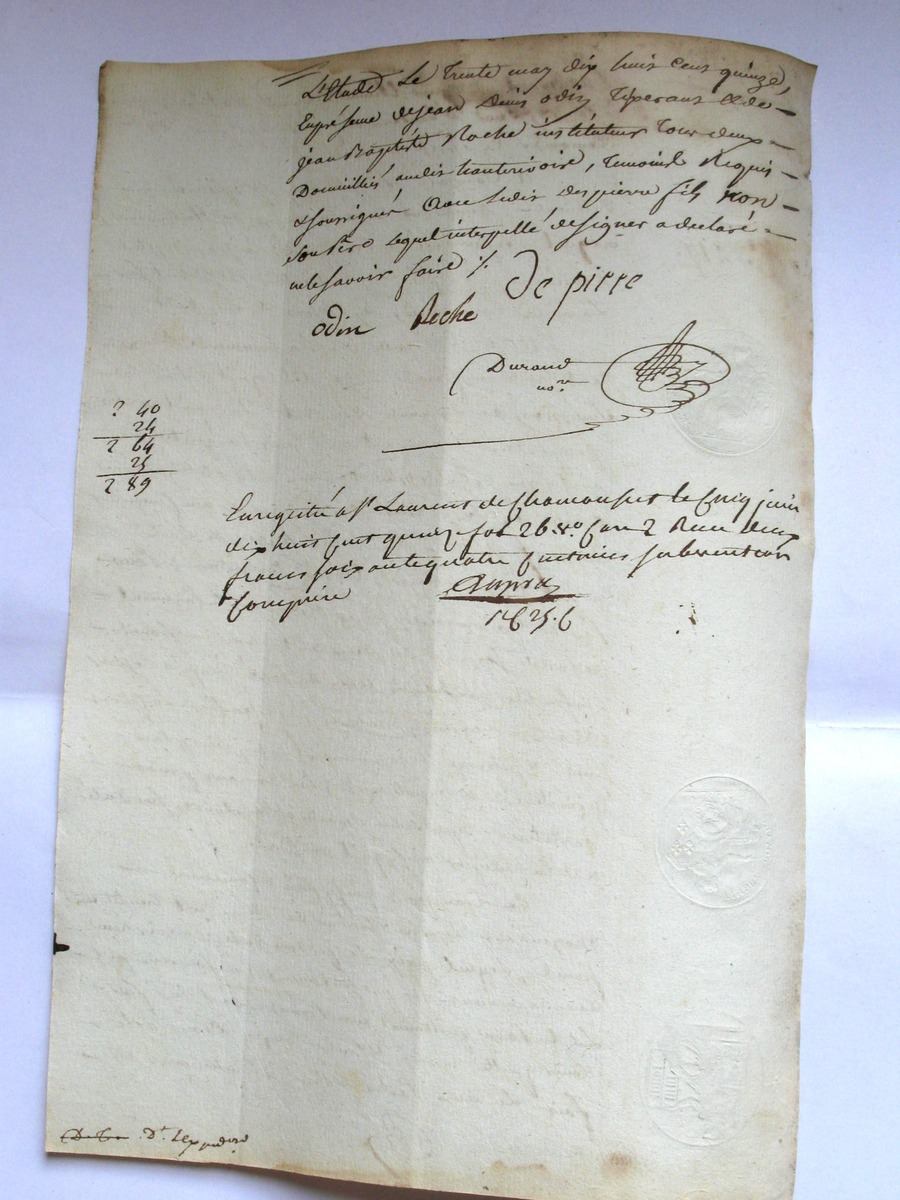 L'Etude le trente may dix huit cent quinze,
En présence de jean denis odin tisserant & de
jean Baptiste Roche instituteur tous deux
Domiciliés audit hauterivoire, temoins Requis
& soussignés avec ledit depierre fils non
son Père lequel interpellé de signer a declaré
ne le savoir faire ./.
De pirre
odin Roche
Durand
no.re
2 40
24
2 64
25
2 89
Enregistré a St Laurent de Chamousset le Cinq juin
dix huit cent quinze fol 26 vo. Case 2 Recu deux
francs soixante quatre centimes subvention
Comprise
Dt. L'expedire